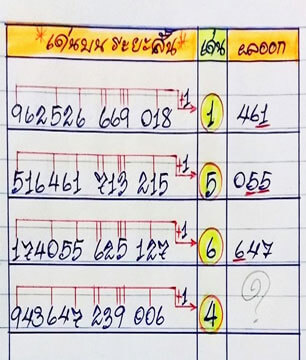 *เด่นบน ระยะสั้น* เด่น ผลออก
+1
962526 669 018 1 461
+1
516461 713 215 5 055
+1
174055 625 127 6 647
+1
943647 239 006 4 ?